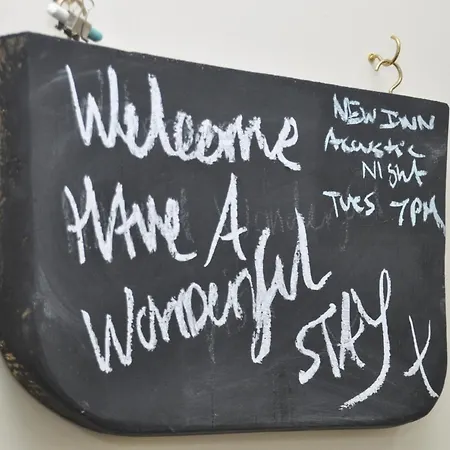 Welcome
HAve A
Wonderful
STAY X
NEW INN
Acoustic
Night
TUES 7PM